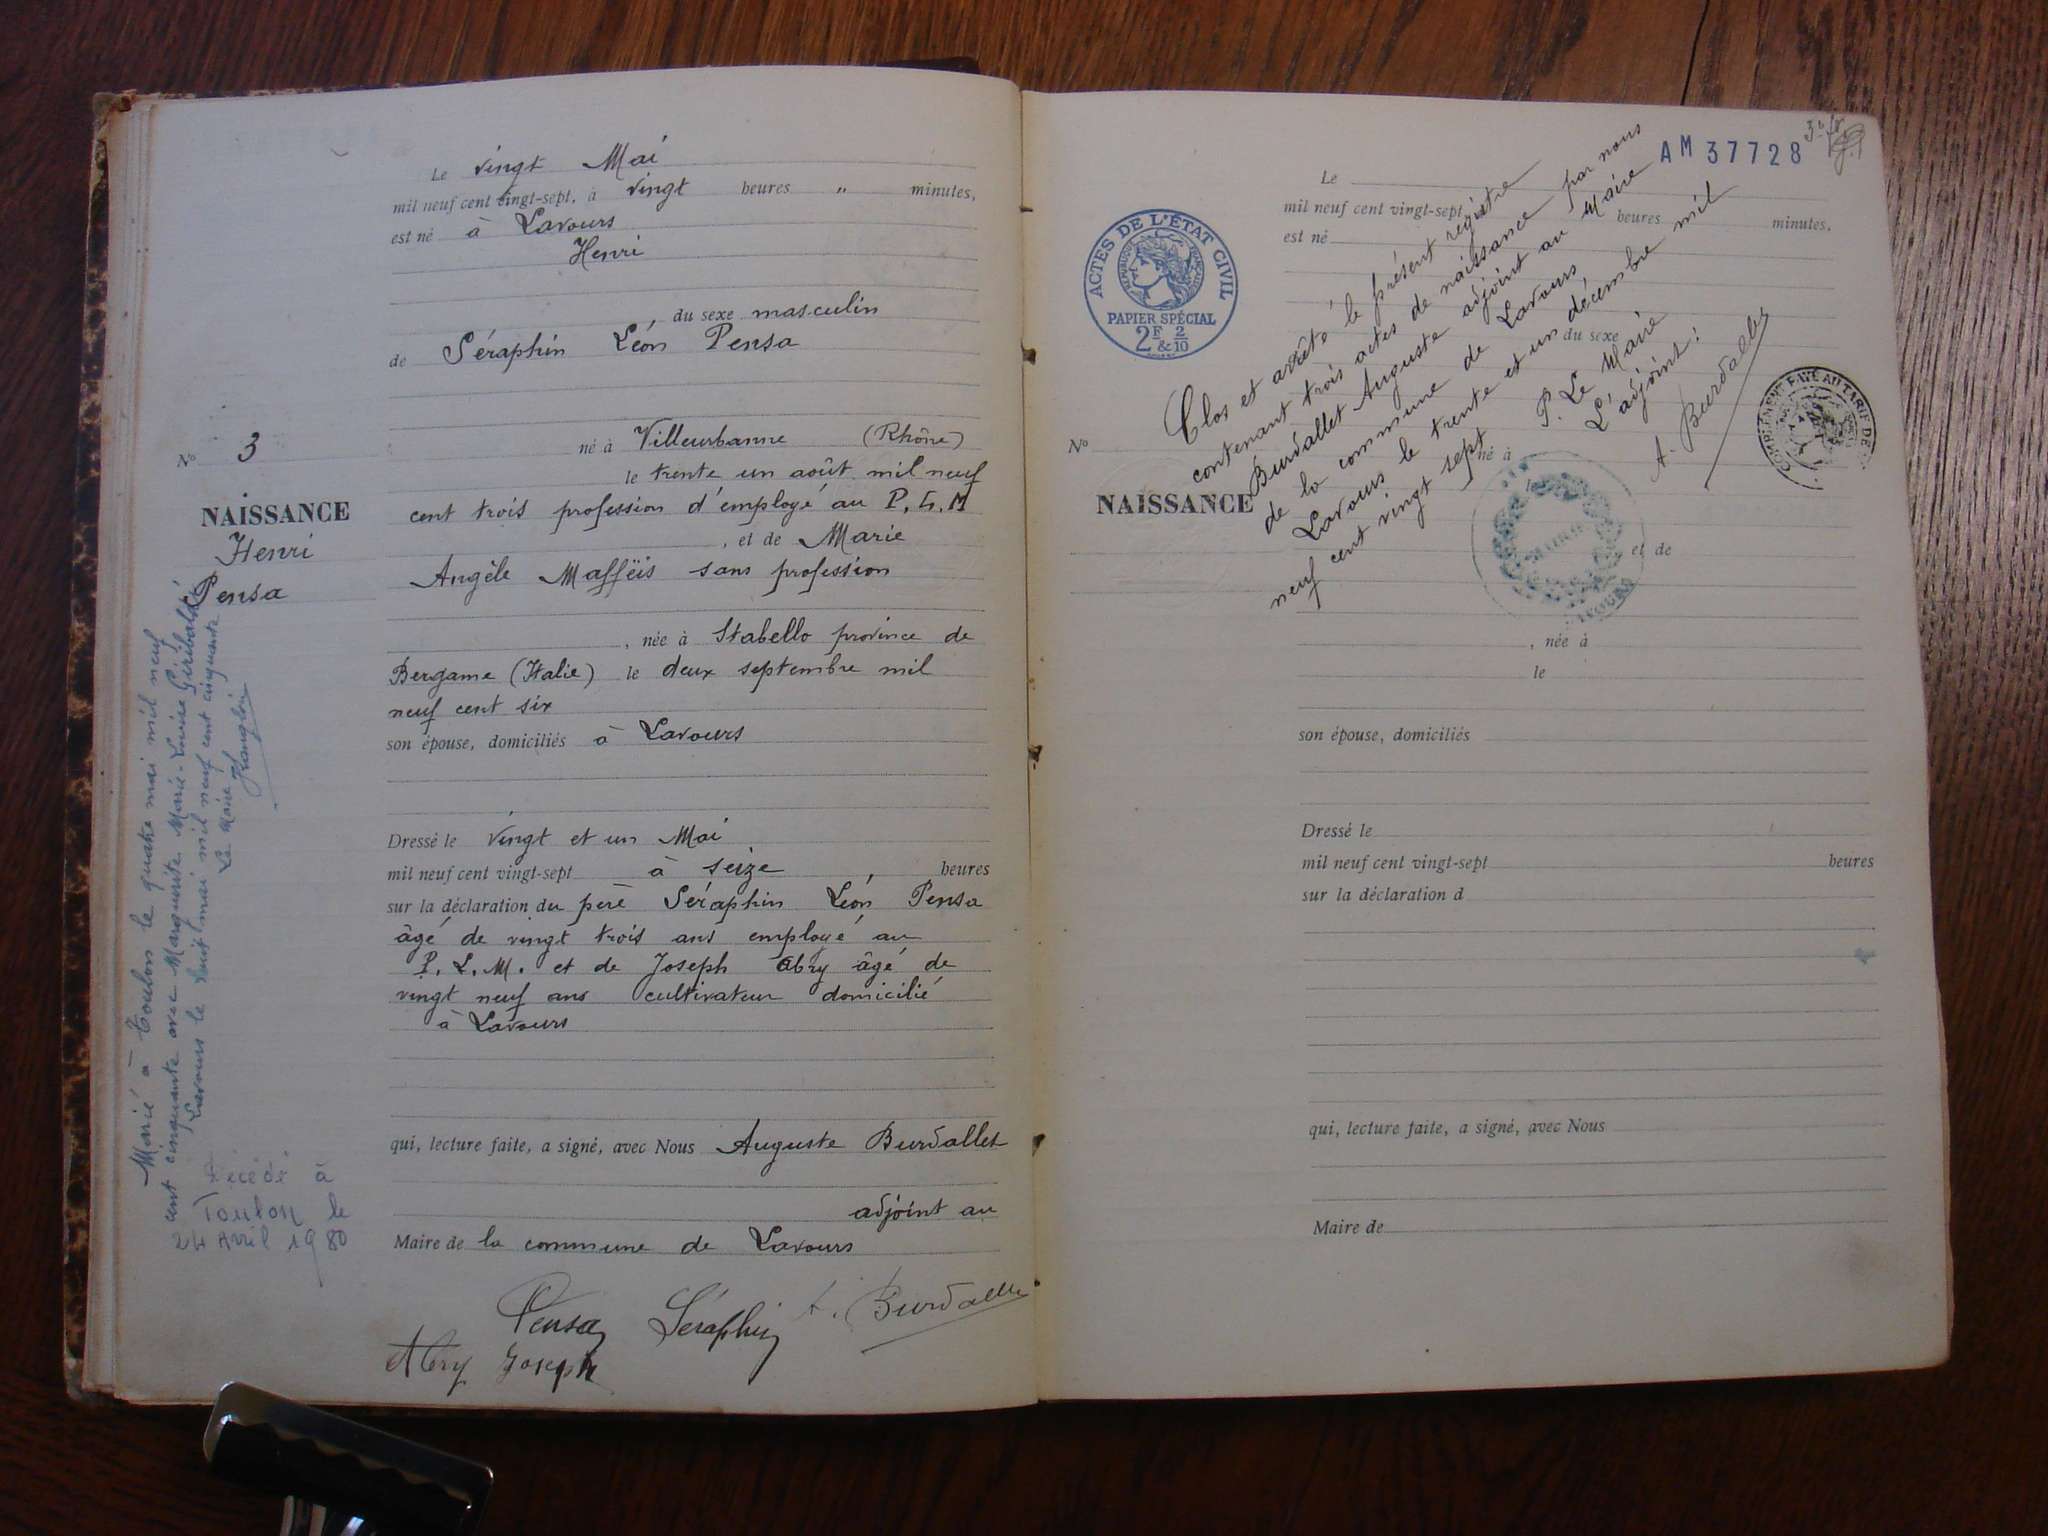 Le vingt Mai
mil neuf cent vingt-sept, à vingt heures " minutes,
est né à Lavours
Henri
du sexe masculin
de Séraphin Léon Pensa
né à Villeurbanne (Rhône)
le trente un août mil neuf
cent trois profession d'employé au P. L. M
, et de Marie
Angèle Mafféis sans profession
, née à Stabello province de
Bergame (Italie) le deux septembre mil
neuf cent six
son épouse, domiciliés à Lavours
Dressé le vingt et un Mai
mil neuf cent vingt-sept à seize heures
sur la déclaration du père Séraphin Léon Pensa
âgé de vingt trois ans employé au
P. L. M. et de Joseph Abry âgé de
vingt neuf ans cultivateur domicilié
à Lavours
qui, lecture faite, a signé, avec Nous Auguste Burdallet
adjoint au
Maire de la commune de Lavours
Pensa Séraphin A. Burdallet
Abry Joseph
No 3
NAISSANCE
Henri
Pensa
Marié à Toulon le quatre mai mil neuf
cent cinquante avec Marguerite Marie-Louise Giribaldi
Lavours le huit mai mil neuf cent cinquante
Le Maire
Décédé à
Toulon le
24 Avril 1980
AM 37728
ACTES DE L'ÉTAT CIVIL
RÉPUBLIQUE FRANÇAISE
PAPIER SPÉCIAL
2F & 2/10
Le
mil neuf cent vingt-sept, heures minutes,
est né
du sexe
No
né à
le
NAISSANCE
et de
, née à
le
son épouse, domiciliés
Dressé le
mil neuf cent vingt-sept heures
sur la déclaration d
qui, lecture faite, a signé, avec Nous
Maire de
Clos et arrêté le présent registre
contenant trois actes de naissance par nous
Burdallet Auguste adjoint au Maire
de la commune de Lavours
Lavours le trente et un décembre mil
neuf cent vingt sept
P. Le Maire
L'adjoint:
A. Burdallet
COMPLÉMENT PAYÉ AU TARIF DE
MAIRIE